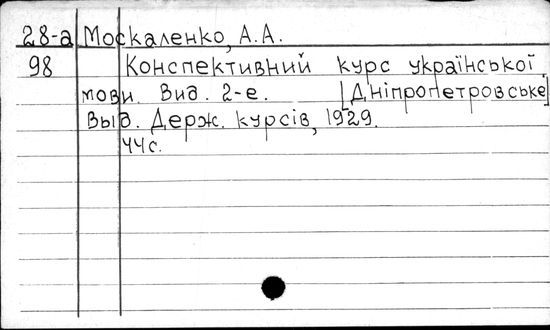 28-а Москаленко, А.А.
98 Конспективний курс української
мови. Вид. 2-е. [Дніпропетровське]
Выд. Держ. курсів, 1929.
44с.